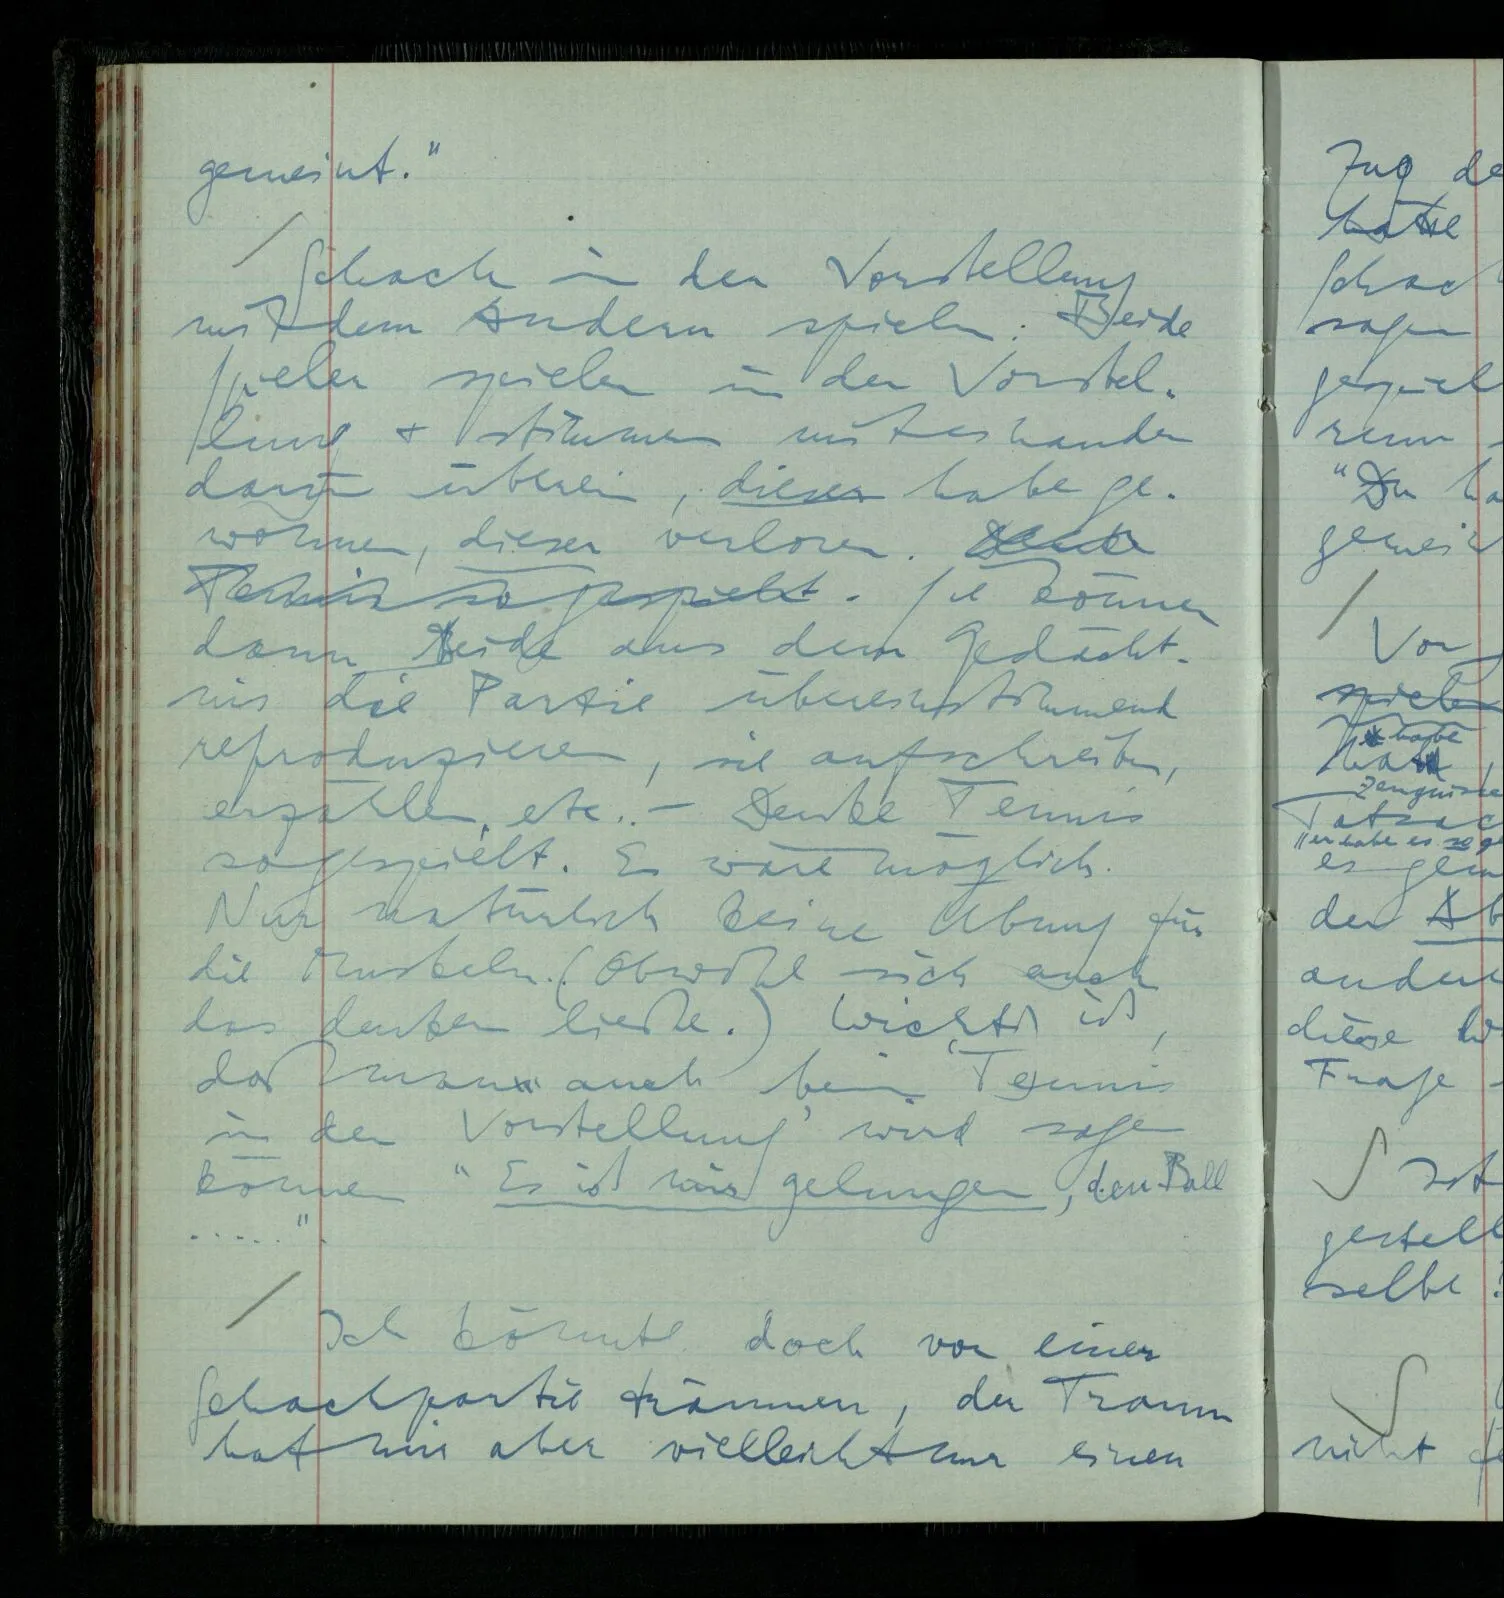 gemeint."
Schach in der Vorstellung
mit dem Andern spielen. Beide
Spieler spielen in der Vorstel-
lung & stimmen miteinander
darin überein, dieser habe ge-
wonnen, dieser verloren. Denke
Tennis so gespielt. Sie können
dann Beide aus dem Gedächt-
nis die Partie übereinstimmend
reproduzieren, sie aufschreiben,
erzählen, etc.. – Denke Tennis
so gespielt. Es wäre möglich.
Nur natürlich keine Übung für
die Muskeln. (Obwohl sich auch
das denken ließe.) Wichtig ist,
daß man auch beim 'Tennis
in der Vorstellung' wird sagen
können "Es ist mir gelungen, den Ball
....."
Ich könnte doch von einer
Schachpartie träumen, der Traum
hat mir aber vielleicht nur einen
Zug de
hätte
Schach
sagen
gespiel
renn
"Du ha
gemein
Vor
spielen
habe
Zeugnisse
Tatsac
"er habe es so ge
es gem
der Ab
andere
diese W
Frage
Ist
gestell
selbe?
nicht